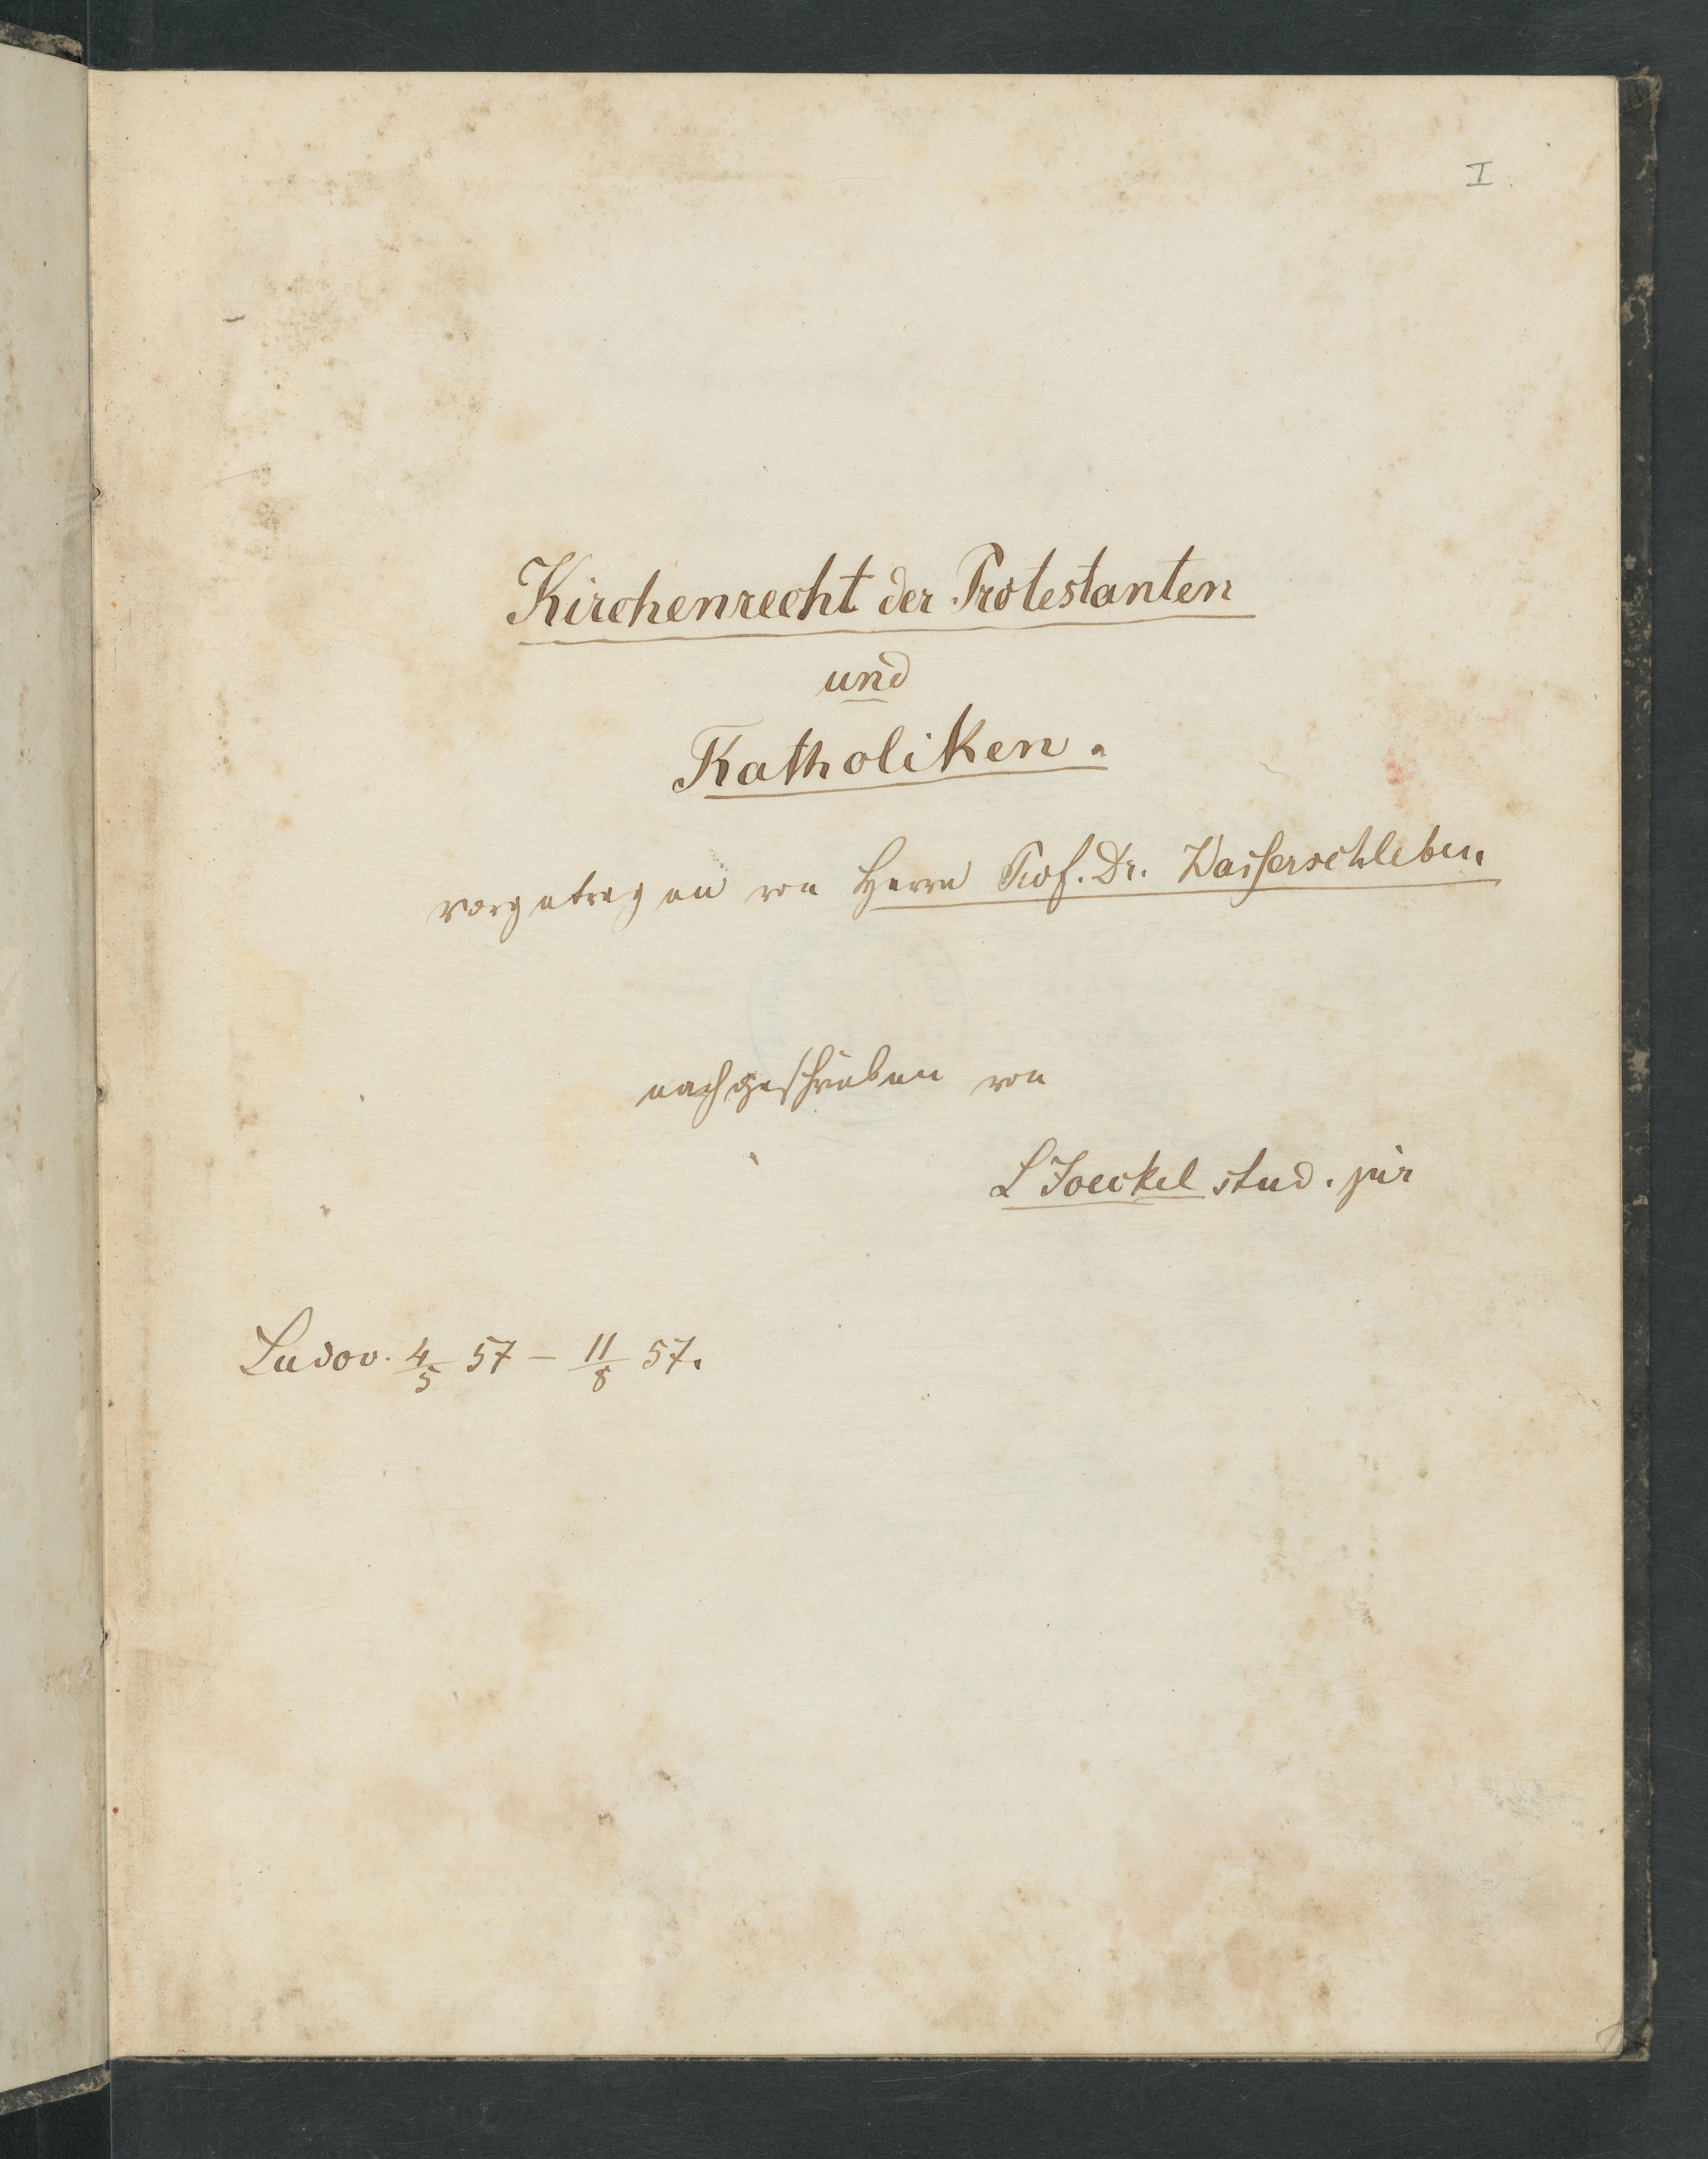 I.
Kirchenrecht der Protestanten
und
Katholiken.
vorgetragen von Herrn Prof. Dr. Wasserschleben.
nachgeschrieben von
L Joeckel stud. jur
Ludov. 4/5 57 – 11/8 57.